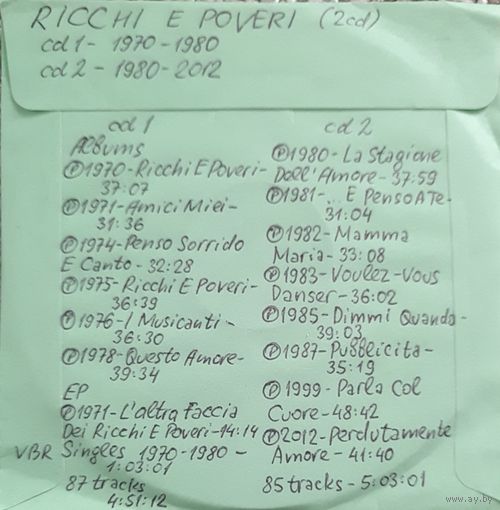 RICCHI E POVERI (2cd)
cd 1 - 1970 - 1980
cd 2 - 1980 - 2012
cd 1
Albums
Ⓟ1970-Ricchi E Poveri-
37:07
Ⓟ1971-Amici Miei-
31:36
Ⓟ1974-Penso Sorrido
E Canto - 32:28
Ⓟ1975-Ricchi E Poveri-
36:39
Ⓟ1976-I Musicanti-
36:30
Ⓟ1978-Questo Amore-
39:34
EP
Ⓟ1971-L'altra Faccia
Dei Ricchi E Poveri-14:14
VBR Singles 1970-1980 -
1:03:01
87 tracks
4:51:12
cd 2
Ⓟ1980-La Stagione
Dell'Amore-37:59
Ⓟ1981-... E Penso A Te-
31:04
Ⓟ1982-Mamma
Maria-33:08
Ⓟ1983-Voulez-Vous
Danser-36:02
Ⓟ1985-Dimmi Quando-
39:03
Ⓟ1987-Pubblicita-
35:19
Ⓟ1999-Parla Col
Cuore-48:42
Ⓟ2012-Perdutamente
Amore-41:40
85 tracks - 5:03:01
www.ay.by